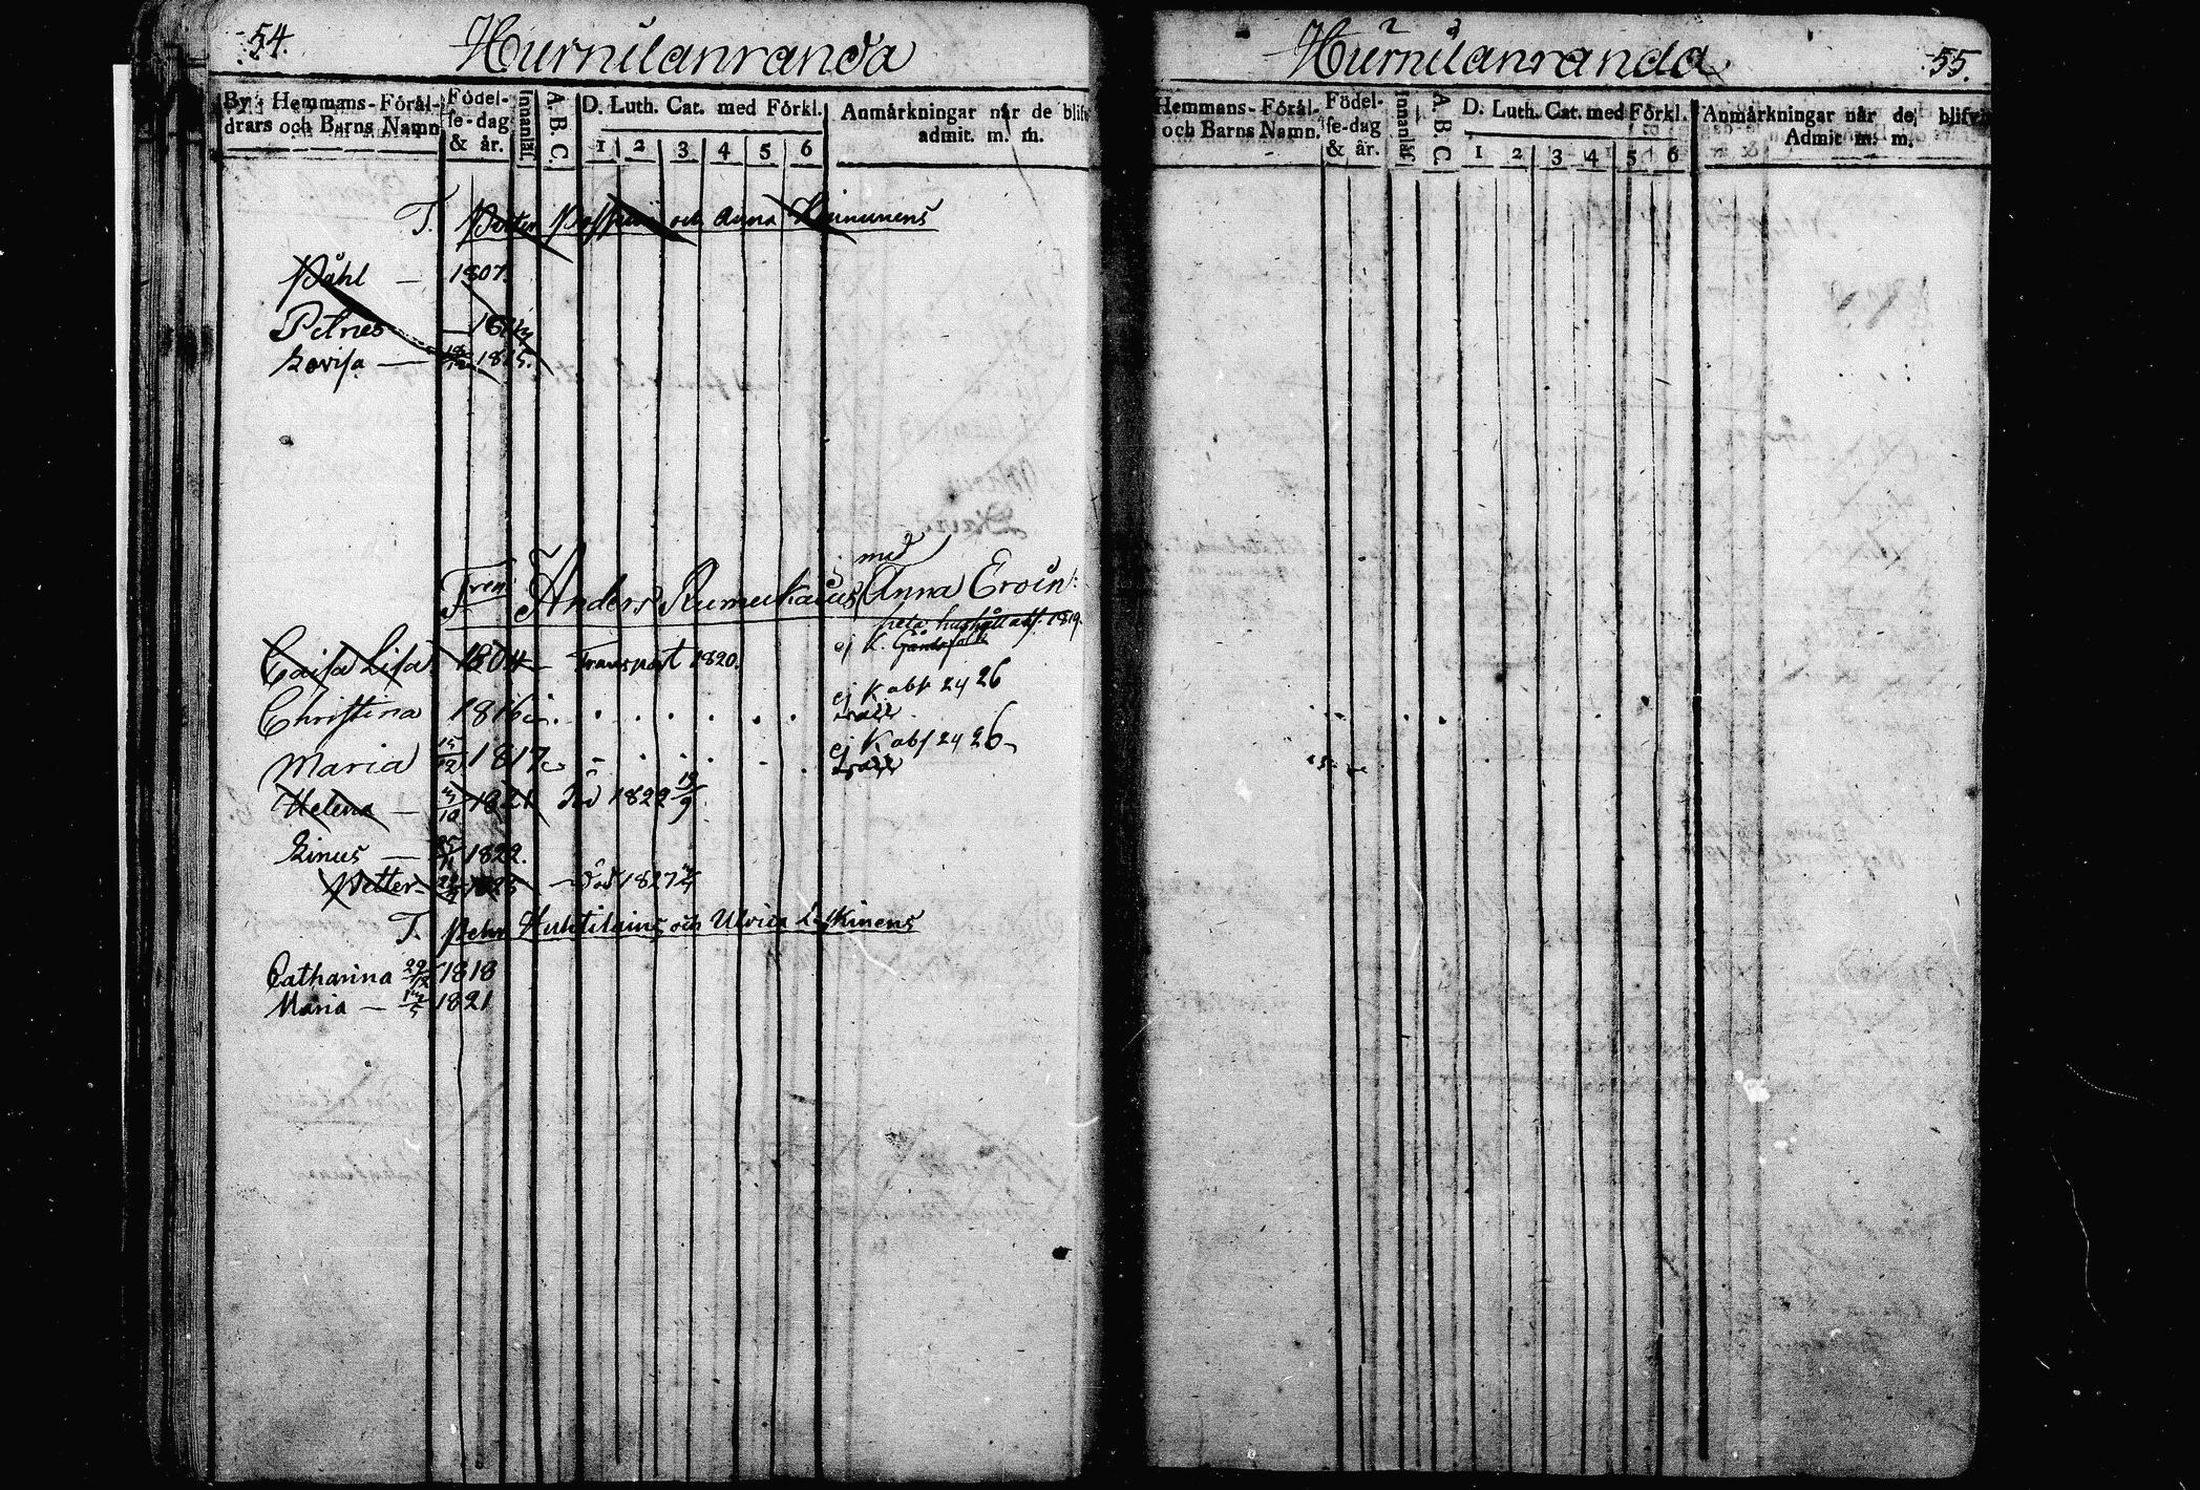 54.
Hurnulanranda
By, Hemmans-Föräl-
drars och Barns Namn
Födel-
se-dag
& år.
Innanläs.
A. B. C.
D. Luth. Cat. med Förkl.
1 2 3 4 5 6
Anmärkningar når de blifv
admit. m. m.
T. Petter och Anna Kinnunens
Påhl — 1807.
Petrus —
Lovisa — 1815.
med
Anders Anna Eroin:
hela hushållet 1819
Caisa Lisa 1804 — Transport 1820.
ej K.
Christina 1816
ej K abs 24 26
Maria 15/12 1817
ej K abs 24 26
Helena — 1821 död 1822 19/9
Linus — 1822.
Petter — död 1827
T. Pehr Huhtilains och Ulrica Leskinens
Catharina 29/12 1818
Maria — 1821
Hurnulanranda
55.
Hemmans-Föräl-
och Barns Namn.
Födel-
se-dag
& år.
Innanläs.
A. B. C.
D. Luth. Cat. med Förkl.
1 2 3 4 5 6
Anmärkningar når de blifvi
Admit m. m.